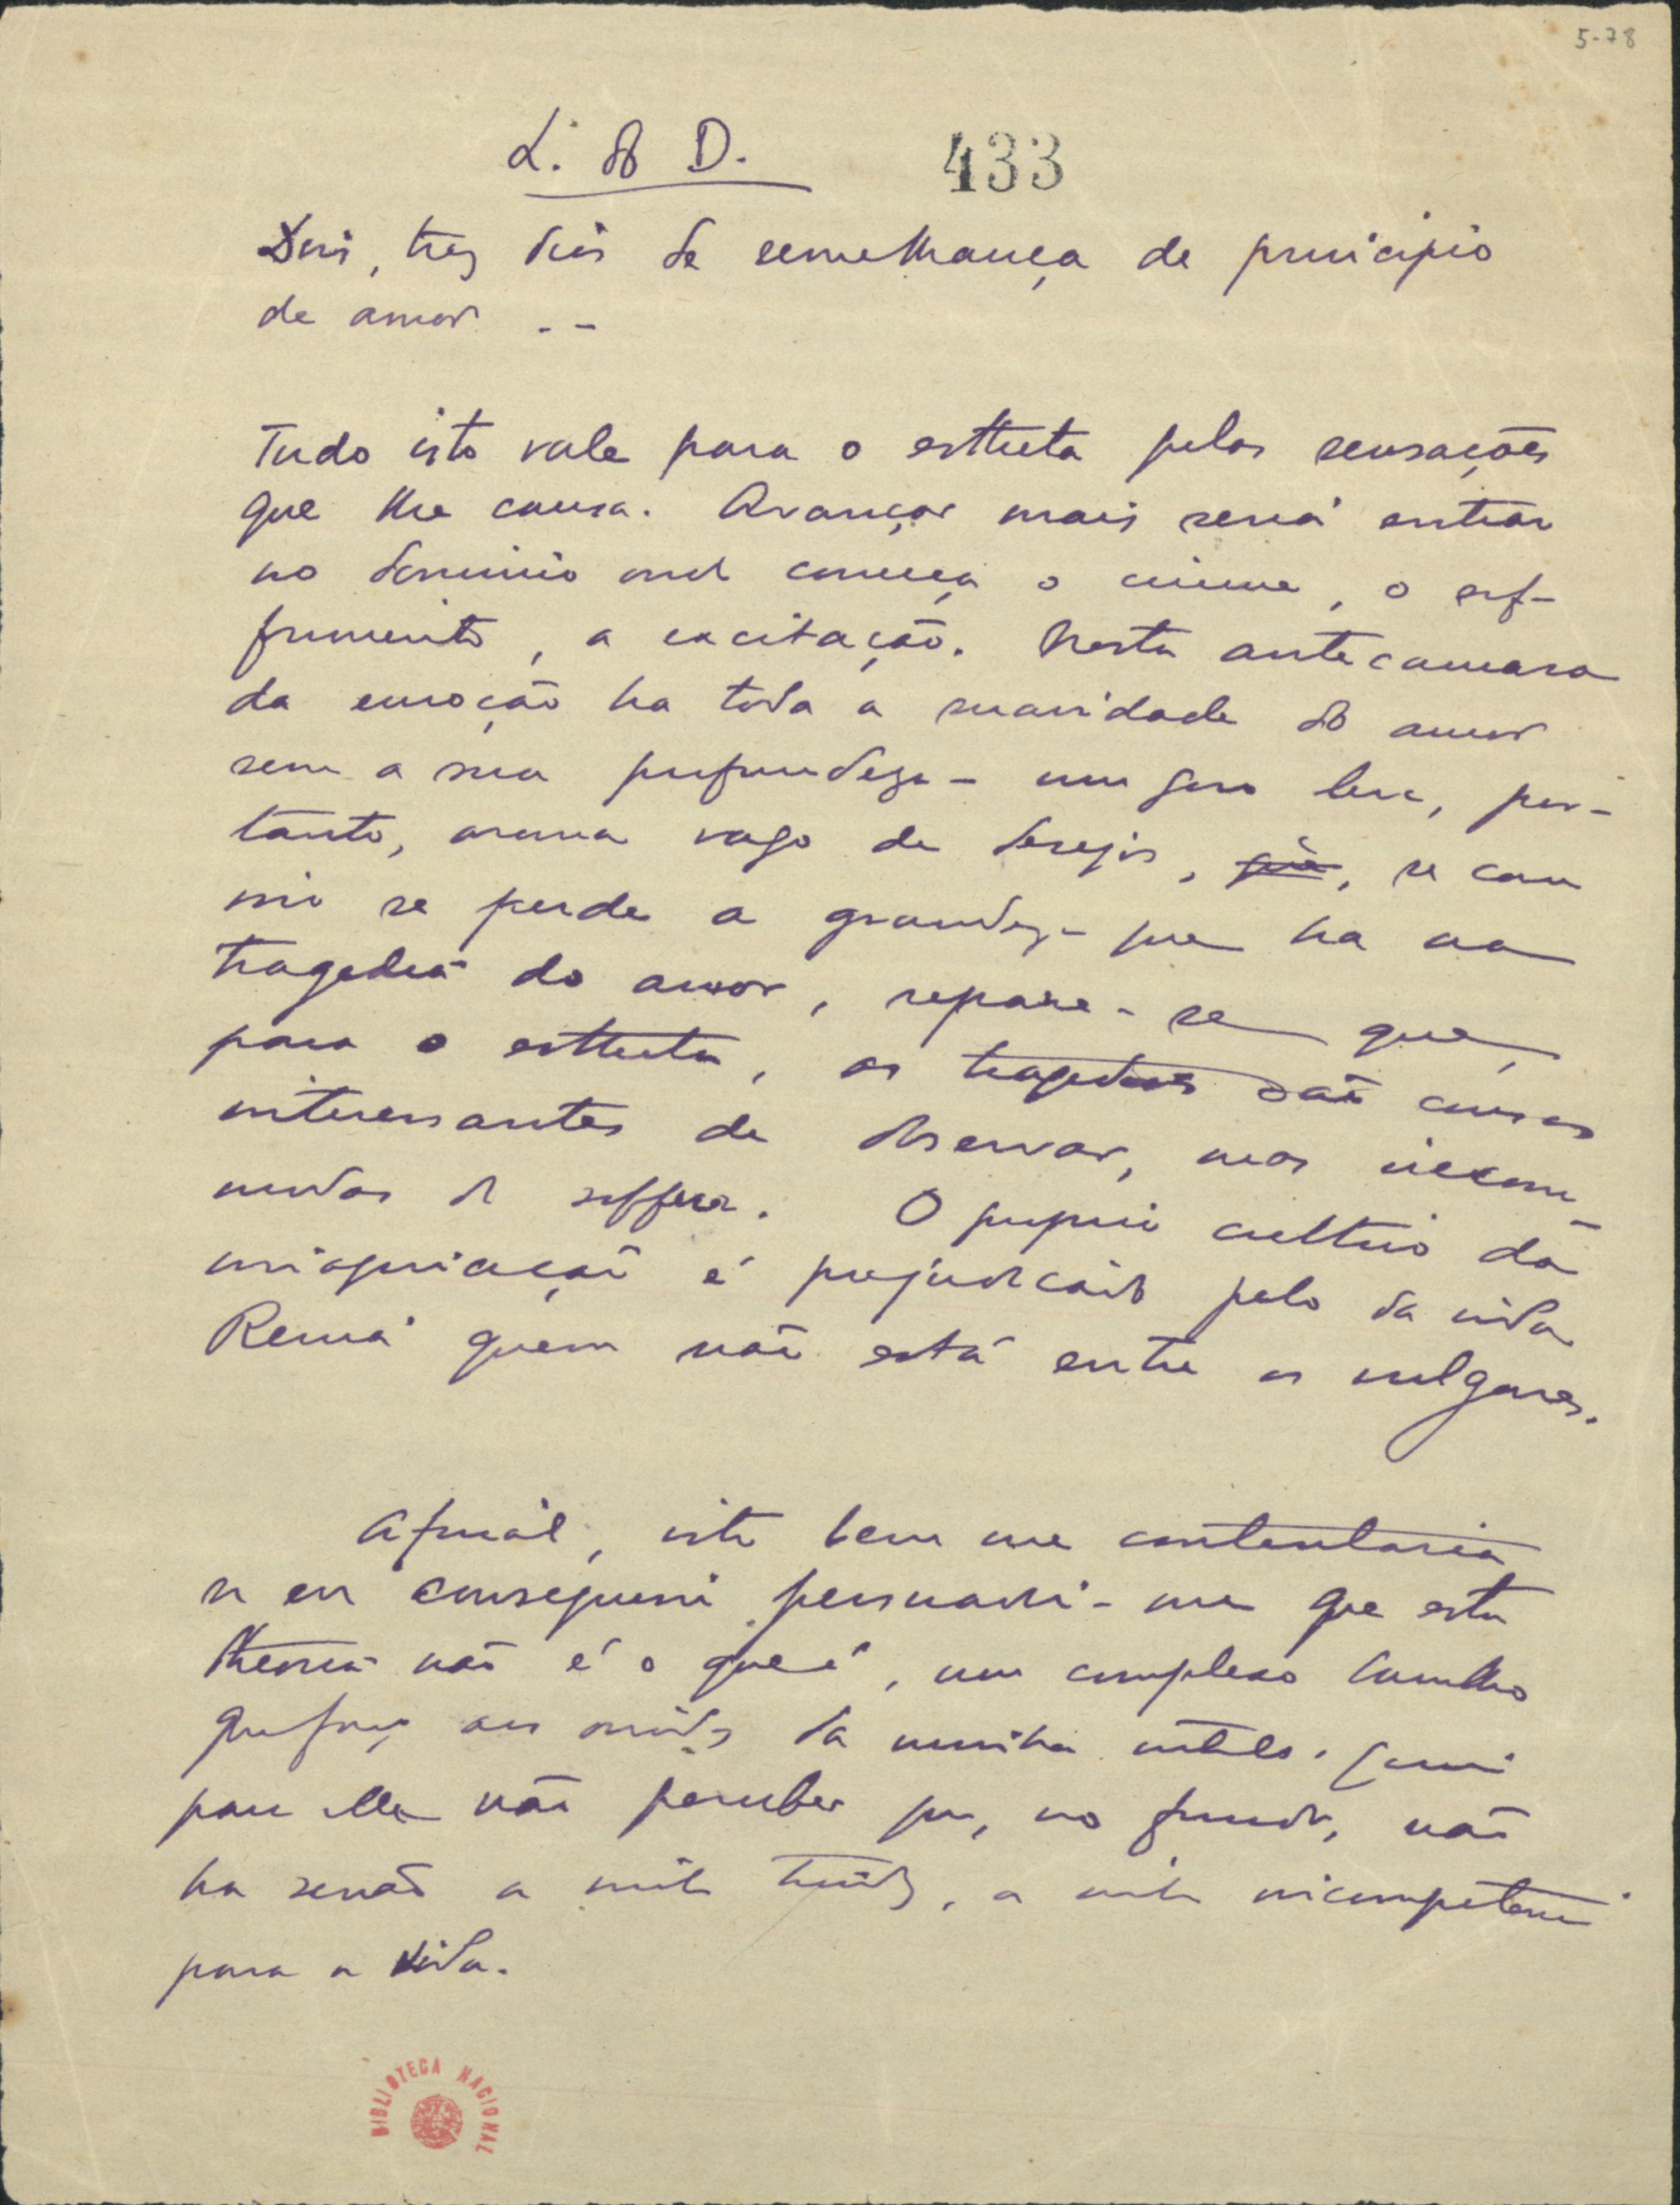 5-78
L. do D. 433
Dois, trez dias de semelhança de principio
de amor . . .
Tudo isto vale para o estheta pelas sensações
que lhe causa. Avançar mais seria entrar
no dominio onde começa o ciume, o sof-
frimento, a excitação. Nesta antecamara
da emoção ha toda a suavidade do amor
sem a sua profundeza - um goso leve, por-
tanto, aroma vago de desejos, que, se com
isso se perde a grandeza que ha na
tragedia do amor, repare-se que,
para o estheta, as tragedias são cousas
interessantes de observar, mas incom-
modas de soffrer. O proprio cultivo da
imaginação é prejudicado pelo da vida
Reina quem não está entre os vulgares.
Afinal, isto bem me contentaria
se eu conseguisse persuadir-me que esta
theoria não é o que é, um complexo barulho
que faço aos ouvidos da minha intelligencia
para ella não perceber que, no fundo, não
ha senão a minha timidez, a minha incompetencia
para a vida.
BIBLIOTECA NACIONAL